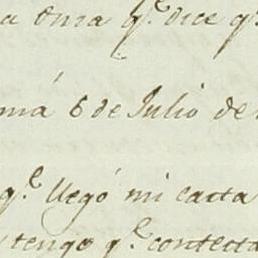 a Oma q.e dice q.e
má 6 de Julio de
q.e llegó mi carta
tengo q.e contesta